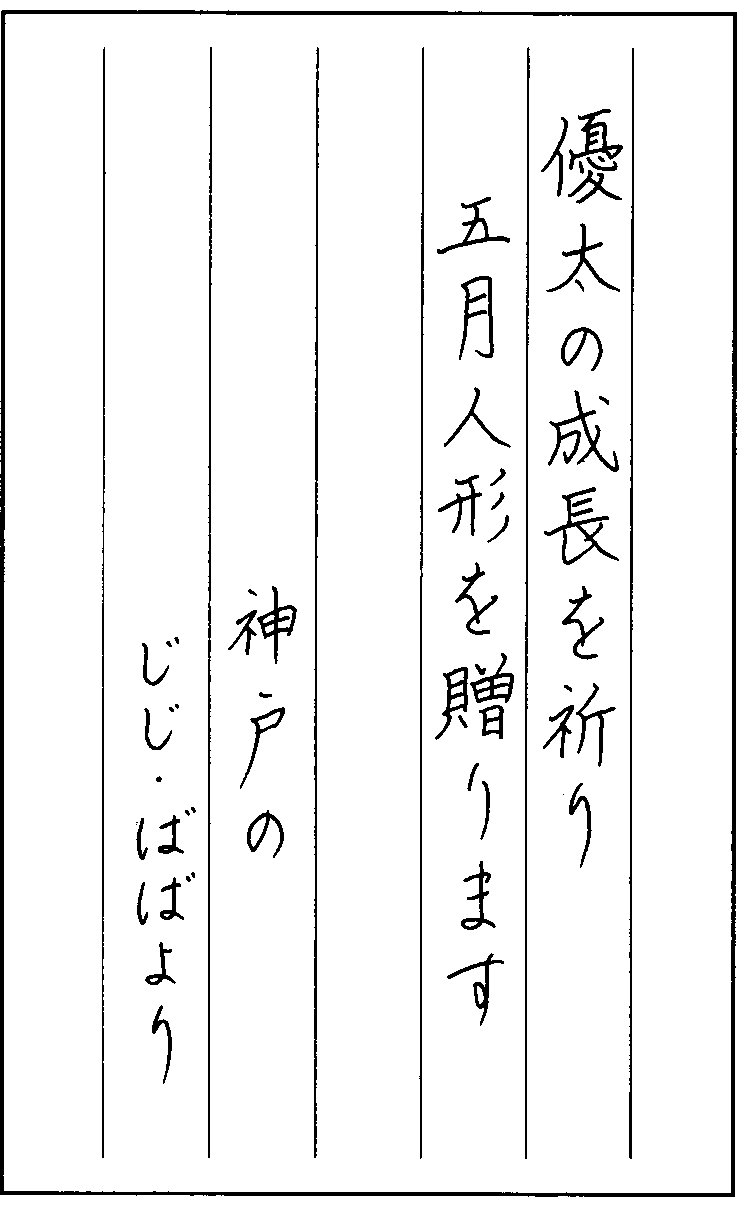 優太の成長を祈り
五月人形を贈ります
神戸の
じじ・ばばより